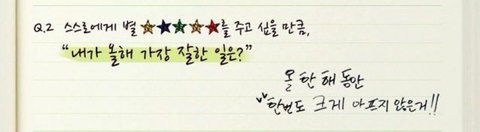 Q.2 스스로에게 별 ★★★★★를 주고 싶을 만큼,
"내가 올해 가장 잘한 일은?"
올 한 해 동안
한번도 크게 아프지 않은거!!